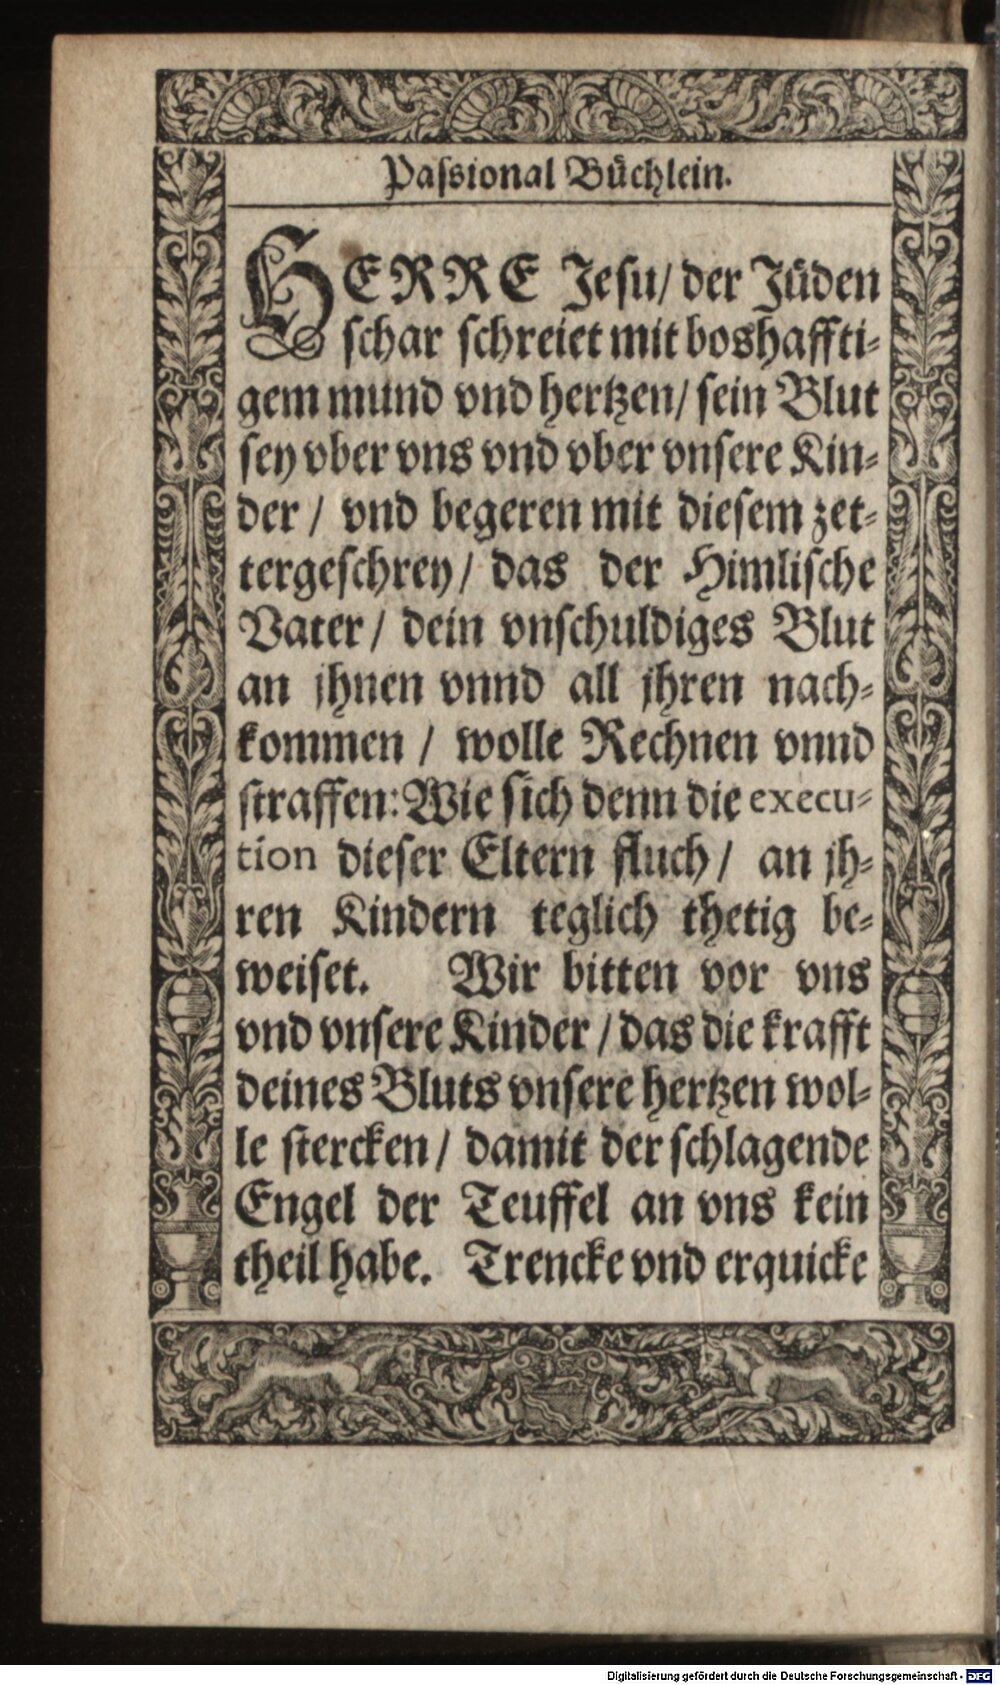 Passional Bůchlein.
HERRE Jesu/ der Jůden
schar schreiet mit boshaffti-
gem mund vnd hertzen/ sein Blut
sey vber vns vnd vber vnsere Kin-
der / vnd begeren mit diesem zet-
tergeschrey/ das der Himlische
Vater/ dein vnschuldiges Blut
an jhnen vnnd all jhren nach-
kommen / wolle Rechnen vnnd
straffen: Wie sich denn die execu-
tion dieser Eltern fluch/ an jh-
ren Kindern teglich thetig be-
weiset. Wir bitten vor vns
vnd vnsere Kinder / das die krafft
deines Bluts vnsere hertzen wol-
le stercken/ damit der schlagende
Engel der Teuffel an vns kein
theil habe. Trencke vnd erquicke
Digitalisierung gefördert durch die Deutsche Forschungsgemeinschaft - DFG